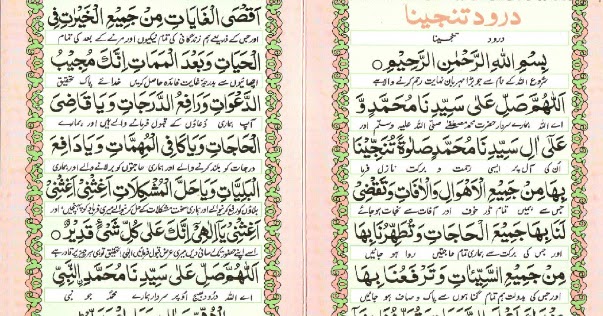 درود تنجینا
درود تنجینا
بِسْمِ اللهِ الرَّحْمٰنِ الرَّحِيْمِ
شروع اللہ کے نام سے جو بڑا مہربان نہایت رحم کرنے والا ہے
اَللّٰهُمَّ صَلِّ عَلٰى سَيِّدِنَا مُحَمَّدٍ وَّ
اے اللہ ہمارے سردار حضرت محمد مصطفٰے صلی اللہ علیہ وسلم اور
عَلٰى اٰلِ سَيِّدِنَا مُحَمَّدٍ صَلٰوةً تُنَجِّيْنَا
ان کی آل پر ایسی رحمت و برکت نازل فرما
بِهَا مِنْ جَمِيْعِ الْاَهْوَالِ وَالْاٰفَاتِ وَتَقْضِيْ
جس سے ہمیں تمام ڈر خوف اور آفات سے نجات ہو جائے
لَنَا بِهَا جَمِيْعَ الْحَاجَاتِ وَتُطَهِّرُنَا بِهَا
اور جس کی برکت سے ہماری تمام حاجتیں روا ہو جائیں
مِنْ جَمِيْعِ السَّيِّئَاتِ وَتَرْفَعُنَا بِهَا
اور جس کی بدولت ہم تمام گناہوں سے پاک و صاف ہو جائیں
اَقْصَى الْغَايَاتِ مِنْ جَمِيْعِ الْخَيْرَاتِ فِي
اور جس کے ذریعے ہم زندگانی کی تمام نیکیوں اور مرنے کے بعد کی تمام
الْحَيَاتِ وَبَعْدَ الْمَمَاتِ اِنَّكَ مُجِيْبُ
اچھائیوں سے بدرجہ غایت فائدہ حاصل کریں خدائے پاک تحقیق
الدَّعْوَاتِ وَرَافِعُ الدَّرَجَاتِ وَيَا قَاضِيَ
آپ ہماری دعاؤں کے قبول فرمانے والے ہیں اور ہمارے
الْحَاجَاتِ وَيَا كَافِيَ الْمُهِمَّاتِ وَيَا دَافِعَ
درجات کو بلند کرنے والے اور ہماری حاجتوں کو بر لانے والے اور ہماری
الْبَلِيَّاتِ وَيَا حَلَّ الْمُشْكِلَاتِ اَغِثْنِيْ اَغِثْنِيْ
اَغِثْنِيْ يَا اِلٰهِيْ اِنَّكَ عَلٰى كُلِّ شَيْءٍ قَدِيْرٌ
اَللّٰهُمَّ صَلِّ عَلٰى سَيِّدِنَا مُحَمَّدِ النَّبِيِّ
اے اللہ درود بھیج اوپر سردار ہمارے محمد جو نبی